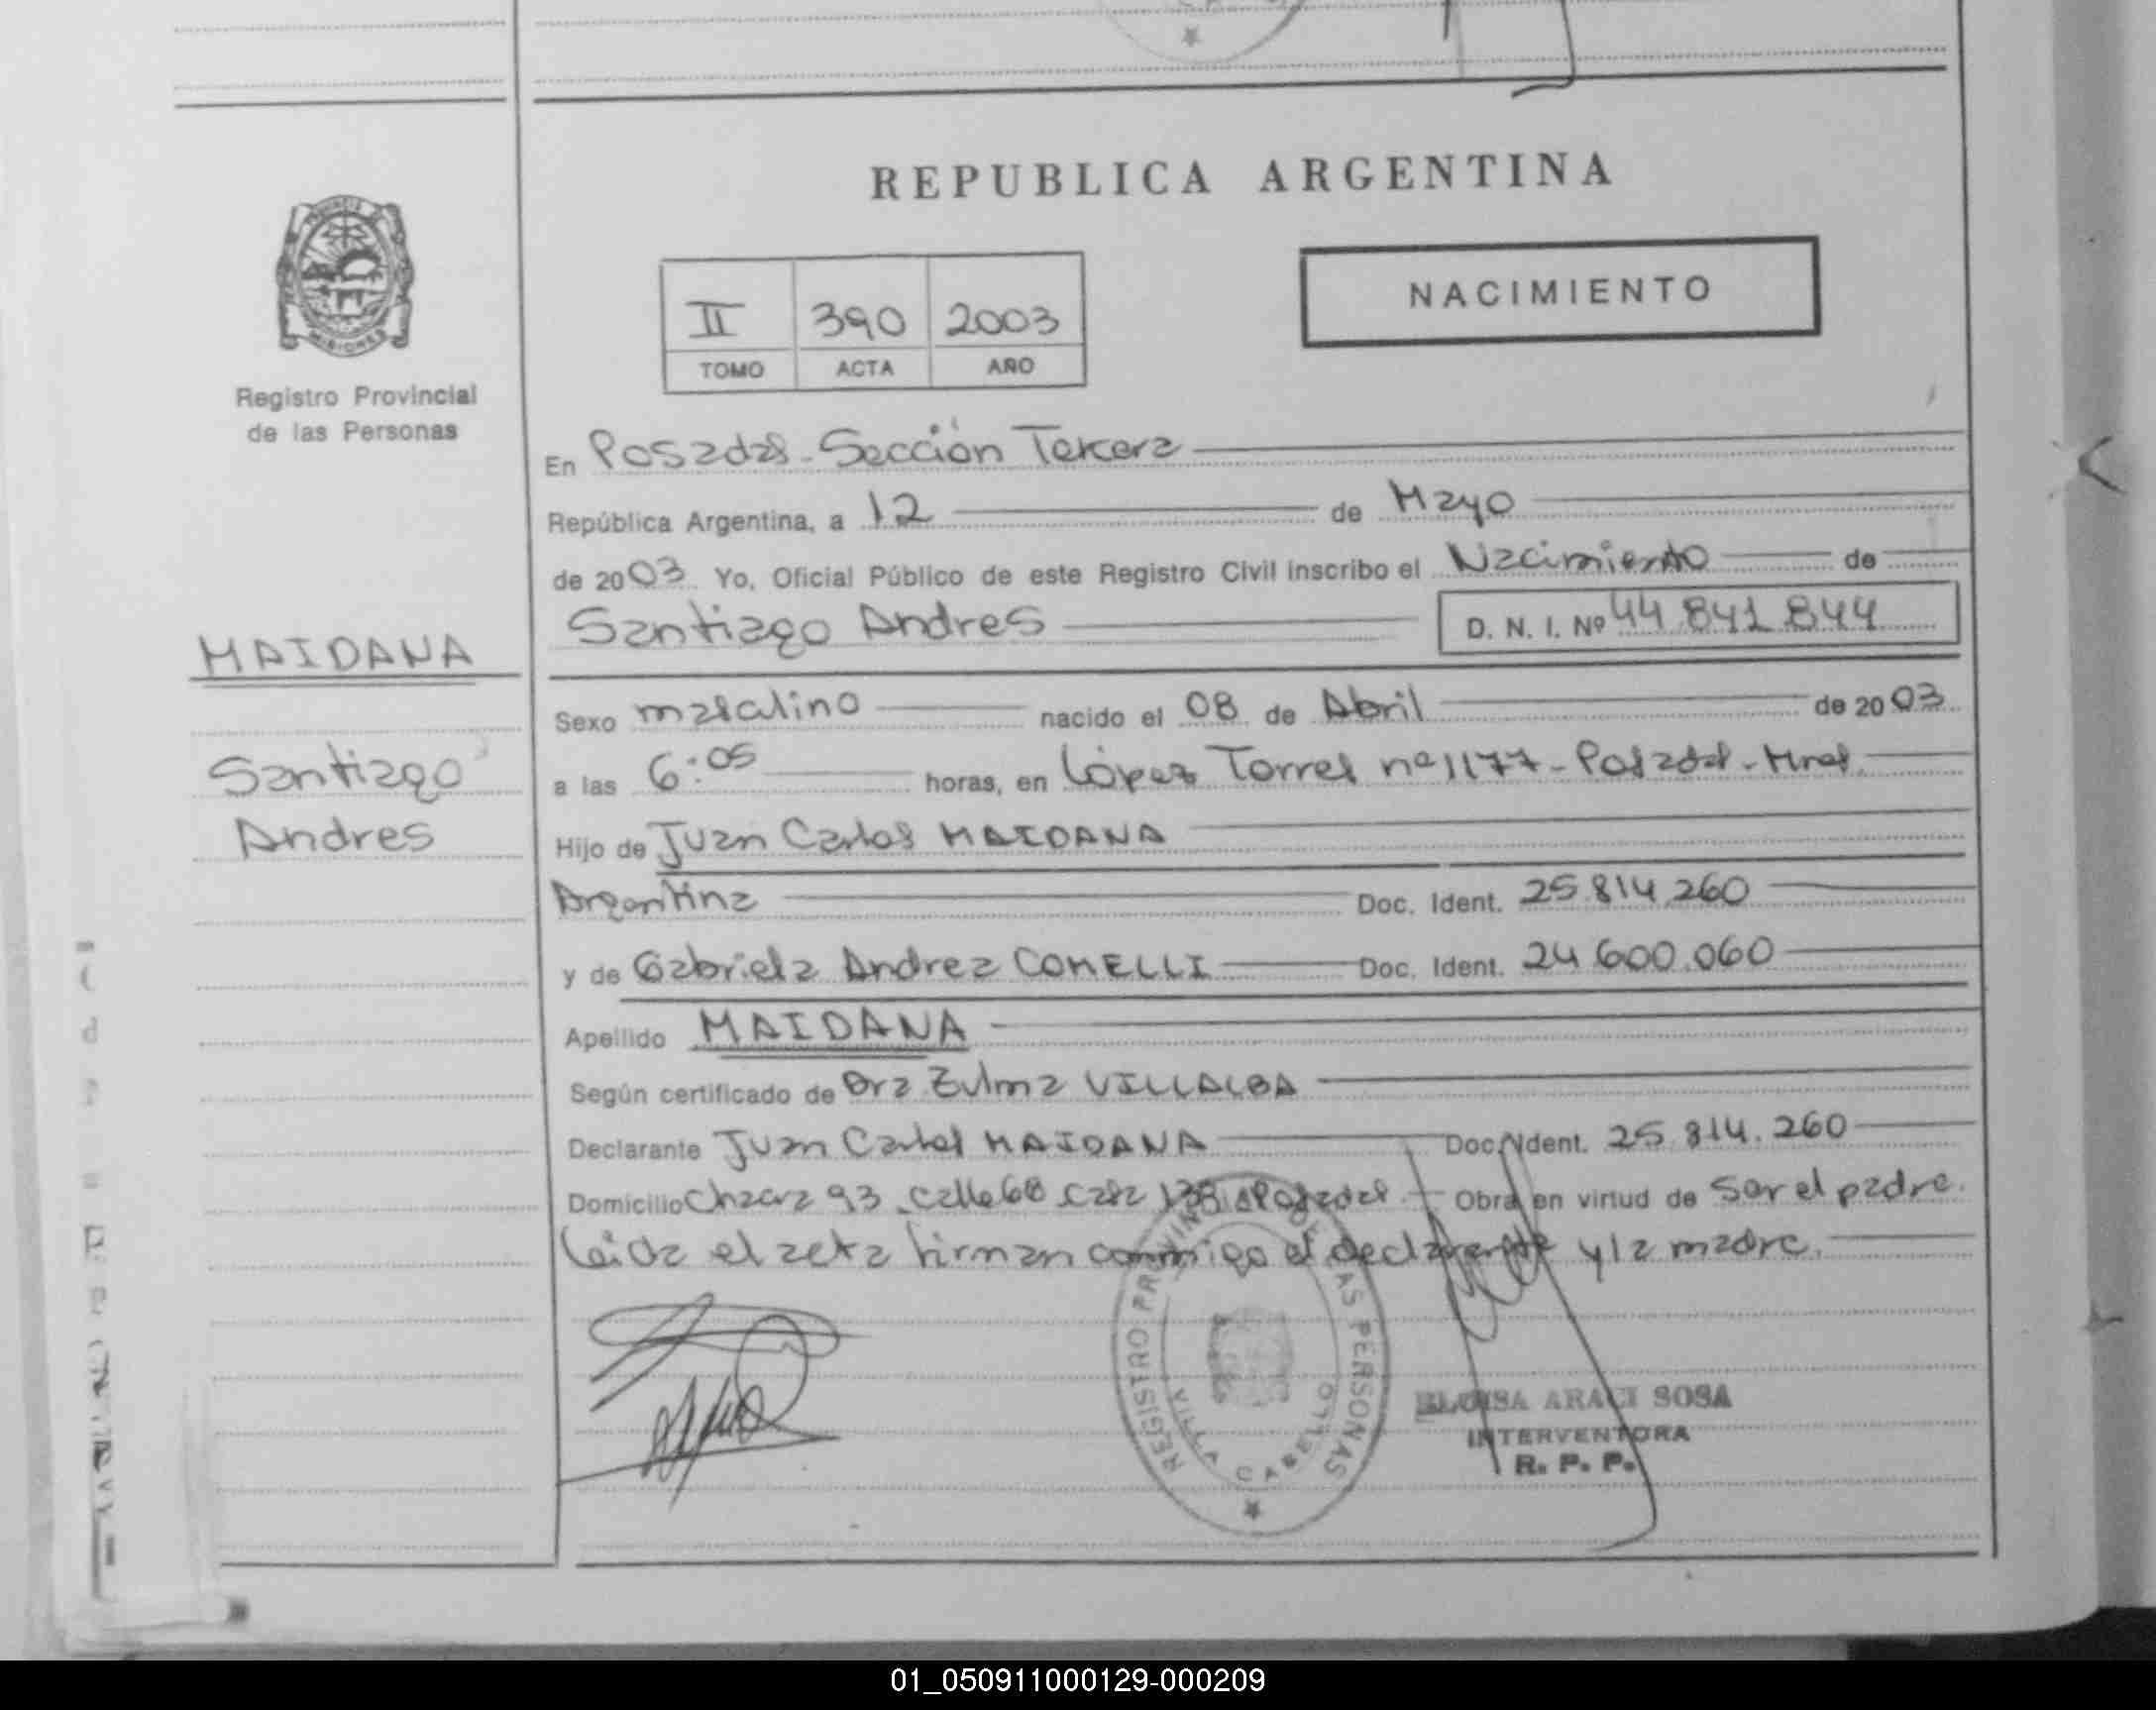 REPUBLICA ARGENTINA
NACIMIENTO
II 390 2003
TOMO ACTA AÑO
Registro Provincial
de las Personas
MISIONES
MAIDANA
Santiago
Andres
En Posadas - Sección Tercera
República Argentina, a 12 de Mayo
de 2003 Yo, Oficial Público de este Registro Civil inscribo el Nacimiento de
Santiago Andres D. N. I. Nº 44.841.844
Sexo masculino nacido el 08 de Abril de 2003
a las 6:05 horas, en López Torres nº 1177 - Posadas - Mnes.
Hijo de Juan Carlos MAIDANA
Argentina Doc. Ident. 25.814.260
y de Gabriela Andrea COMELLI Doc. Ident. 24.600.060
Apellido MAIDANA
Según certificado de Dra Zulma VILLALBA
Declarante Juan Carlos MAIDANA Doc. Ident. 25.814.260
Domicilio Chacra 93 calle 68 casa Posadas Obra en virtud de ser el padre.
Leida el acta firman conmigo el declarante y la madre.
REGISTRO PROVINCIAL DE LAS PERSONAS
VILLA CABELLO
ELOISA ARACI SOSA
INTERVENTORA
R. P. P.
01_050911000129-000209